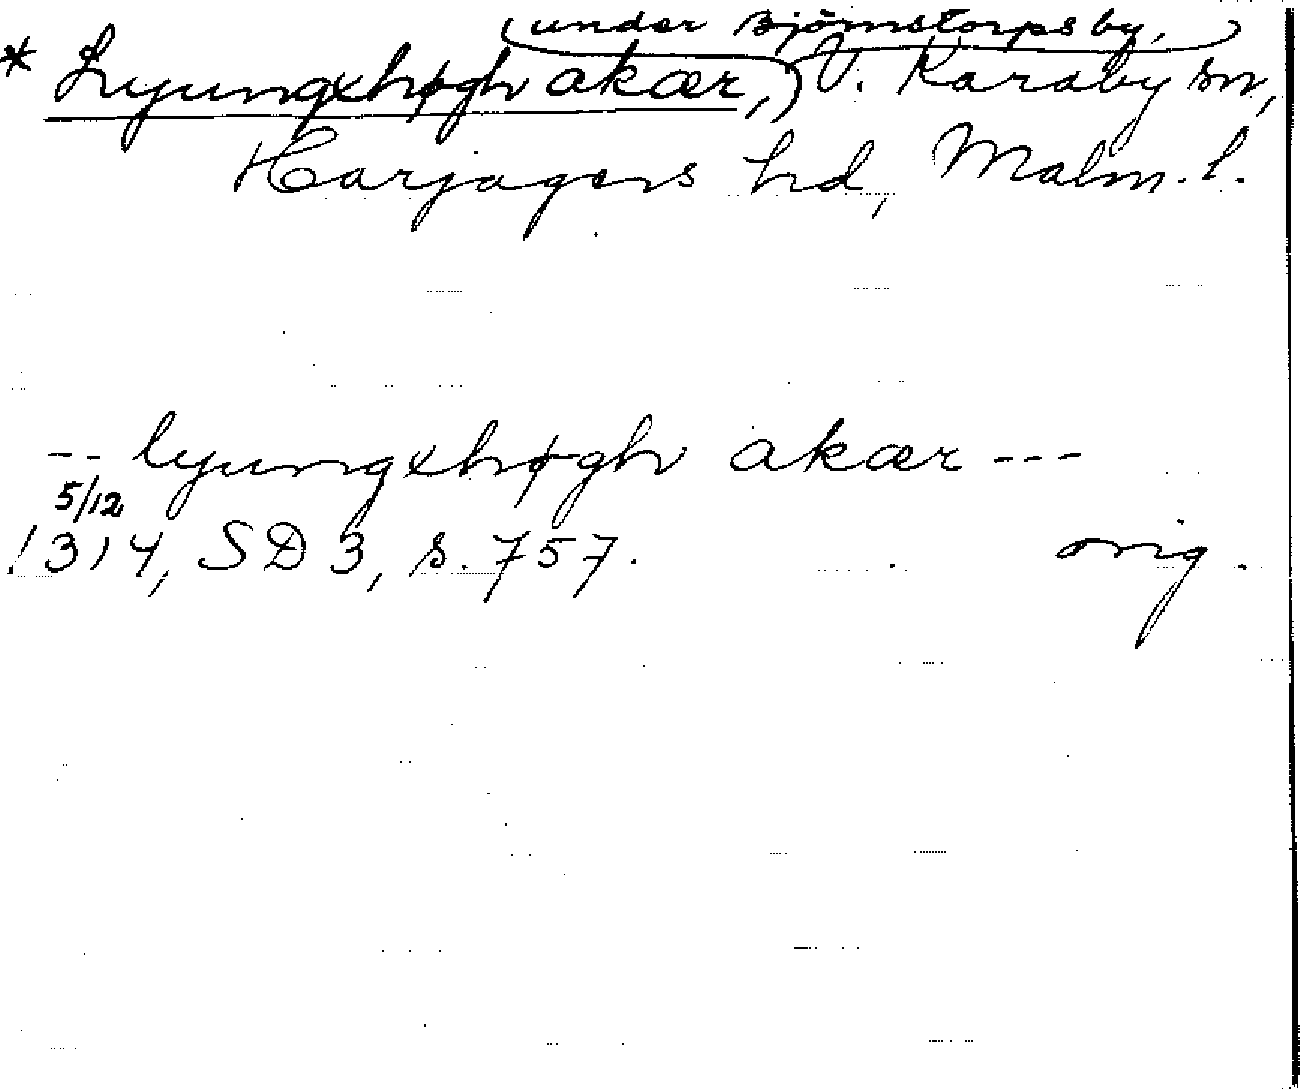 (under Björnstorps by,)
* Lyungxhøgh akær, V. Karaby sn,
Harjagers hd, Malm. l.
-- lyungxhøgh akær ---
5/12
1314, SD 3, s. 757. orig.